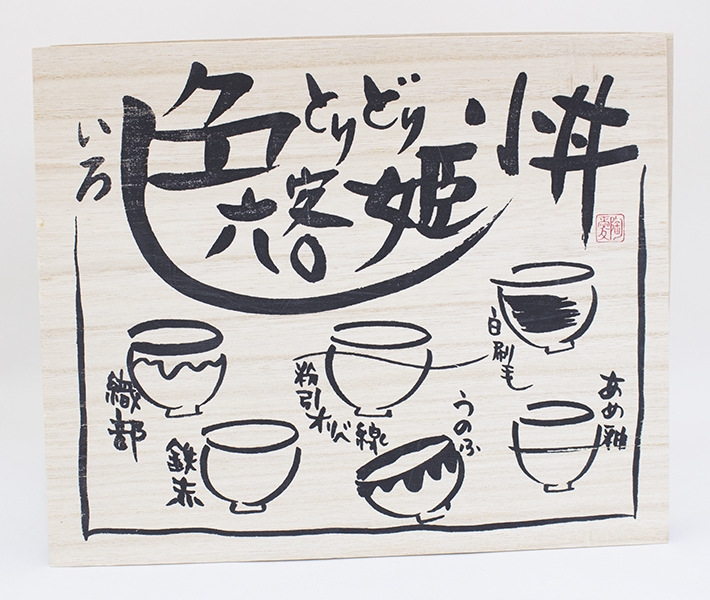 いろ
色とりどり
六客姫小丼
白刷毛
あめ釉
粉引オリベ線
うのふ
織部
鉄赤